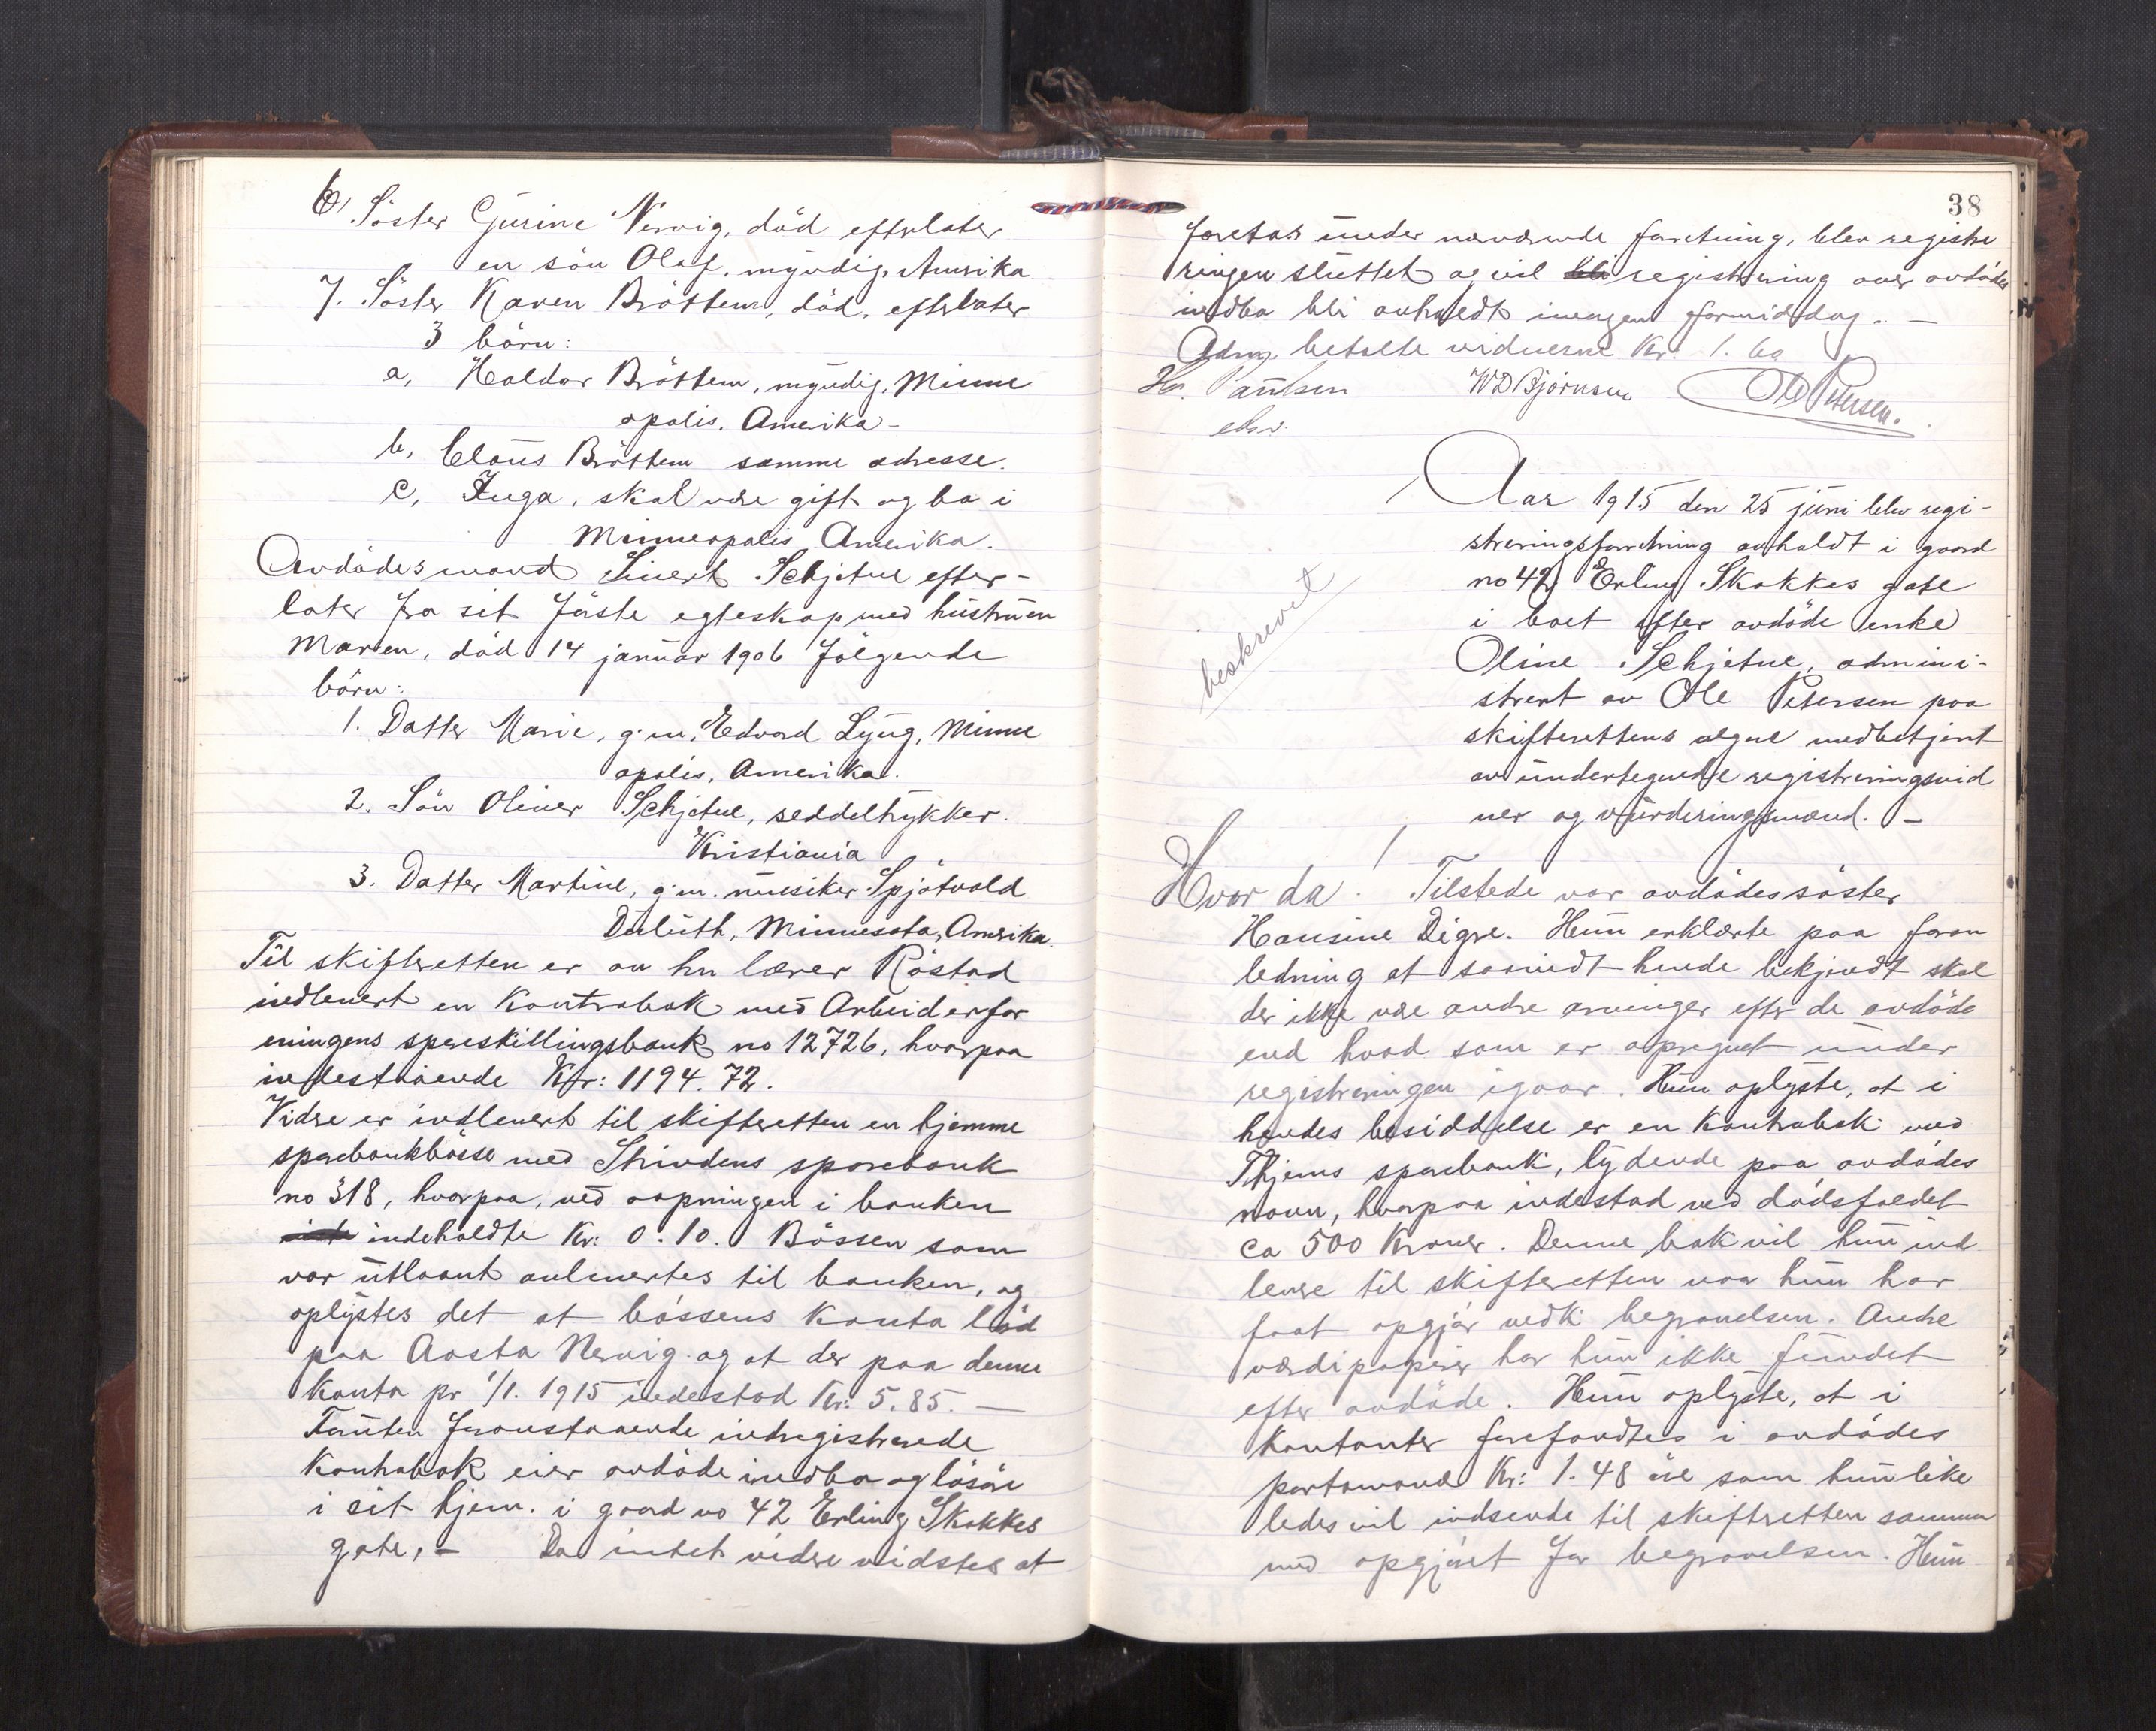 6, Söster Gurine Nervig, död efterlater
en sön Olaf, myndig, Amerika
7. Söster Karen Bröttem, död, efterlater
3 börn:
a, Haldor Bröttem, myndig, Minne
apolis, Amerika -
b, Claus Bröttem samme adresse.
c, Inga, skal være gift og bo i
Minneapolis Amerika.
Avdödes mand Sivert Schjetne efter-
later fra sit förste egteskap med hustruen
Maren, död 14 januar 1906 fölgende
börn:
1. Datter Marie, g.m. Edvard Lyng, Minne
apolis, Amerika.
2. Sön Oliver Schjetne, seddeltrykker.
Kristiania
3. Datter Martine, g.m. musiker Spjötvold
Duluth, Minnesota, Amerika.
Til skifteretten er av hr lærer Röstad
indlevert en Kontrabok med Arbeiderfor
eningens spareskillingsbank no 12726, hvorpaa
indestaaende Kr: 1194.72.
Vidre er indlevert til skifteretten en hjemme
sparebankbösse med Strindens sparebank
no 318, hvorpaa, ved aapningen i banken
indeholdte Kr: 0.10. Bössen som
var utlaant avlevertes til banken, og
oplystes det at bössens Konto löd
paa Aasta Nervig og at der paa denne
Konto pr 1/1. 1915 indestod Kr: 5.85. —
Foruten foranstaaende indregistrerede
Kontrabok eier avdöde indbo og lösöre
i sit hjem i gaard no 42 Erling Skakkes
gate, - Da intet videre vidstes at
38
foretas under nærværende forretning, blev registre
ringen sluttet og vil registrering over avdödes
indbo bli avholdt imorgen formiddag. —
Adm. betalte vidnerne Kr. 1.60
Hr. Paulsen W D Björnsen Ole Petersen.
edsv.
Aar 1915 den 25 juni blev regi-
streringsforretning avholdt i gaard
no 42 Erling Skakkes gate
i boet efter avdöde enke
Oline Schjetne, admini-
strert av Ole Petersen paa
skifterettens vegne medbetjent
av undertegnede registreringsvid
ner og vurderingsmænd. -
beskrevet
Hvor da! Tilstede var avdödes söster
Hansine Digre. Hun erklærte paa foran
ledning at saavidt hende bekjendt skal
der ikke være andre arvinger efter de avdöde
end hvad som er opregnet under
registreringen igaar. Hun oplyste, at i
hendes besiddelse er en Kontrabok med
Thjems sparebank, lydende paa avdödes
navn, hvorpaa indestod ved dödsfaldet
ca 500 Kroner. Denne bok vil hun ind
levre til skifteretten naar hun har
faat opgjör vedk begravelsen. Andre
værdipapirer har hun ikke fundet
efter avdöde. Hun oplyste, at i
Kontanter forefandtes i avdödes
portemonæ Kr: 1.48 öre som hun like
ledes vil indsende til skifteretten sammen
med opgjöret for begravelsen. Hun